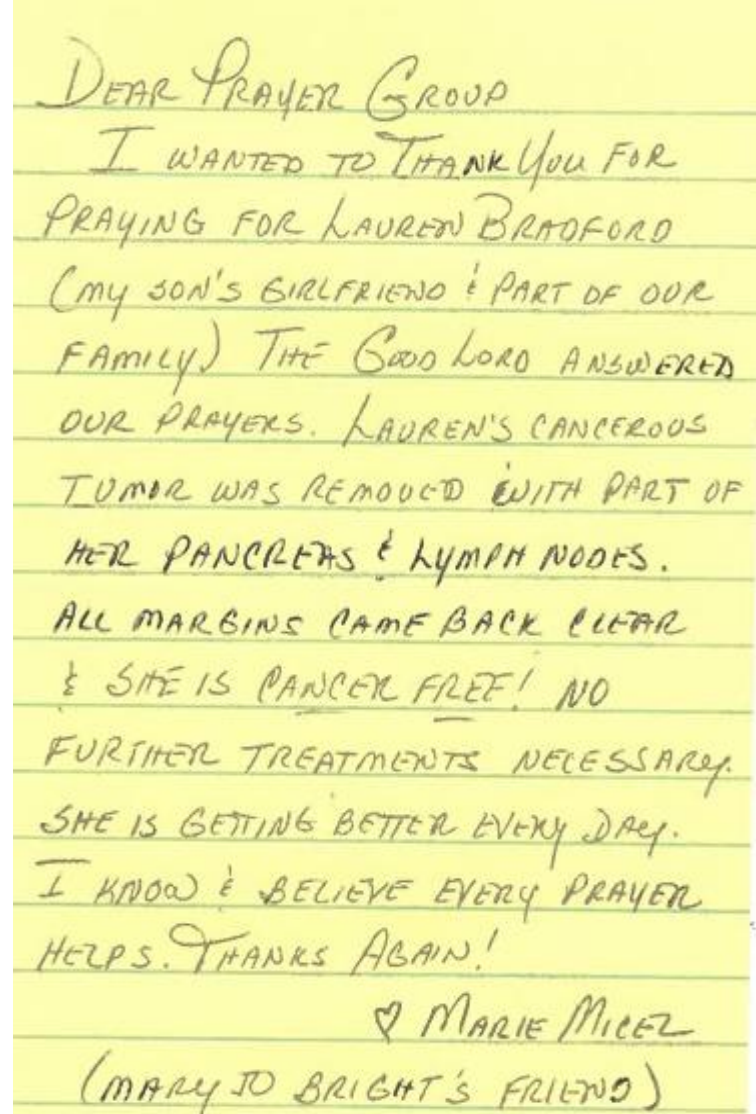 Dear Prayer Group
I wanted to Thank You for
Praying for Lauren Bradford
(my son's girlfriend & part of our
family) The Good Lord answered
our prayers. Lauren's cancerous
tumor was removed with part of
her pancreas & lymph nodes.
All margins came back clear
& she is cancer free! No
further treatments necessary.
She is getting better every day.
I know & believe every prayer
helps. Thanks Again!
♡ Marie Micel
(Mary Jo Bright's friend)